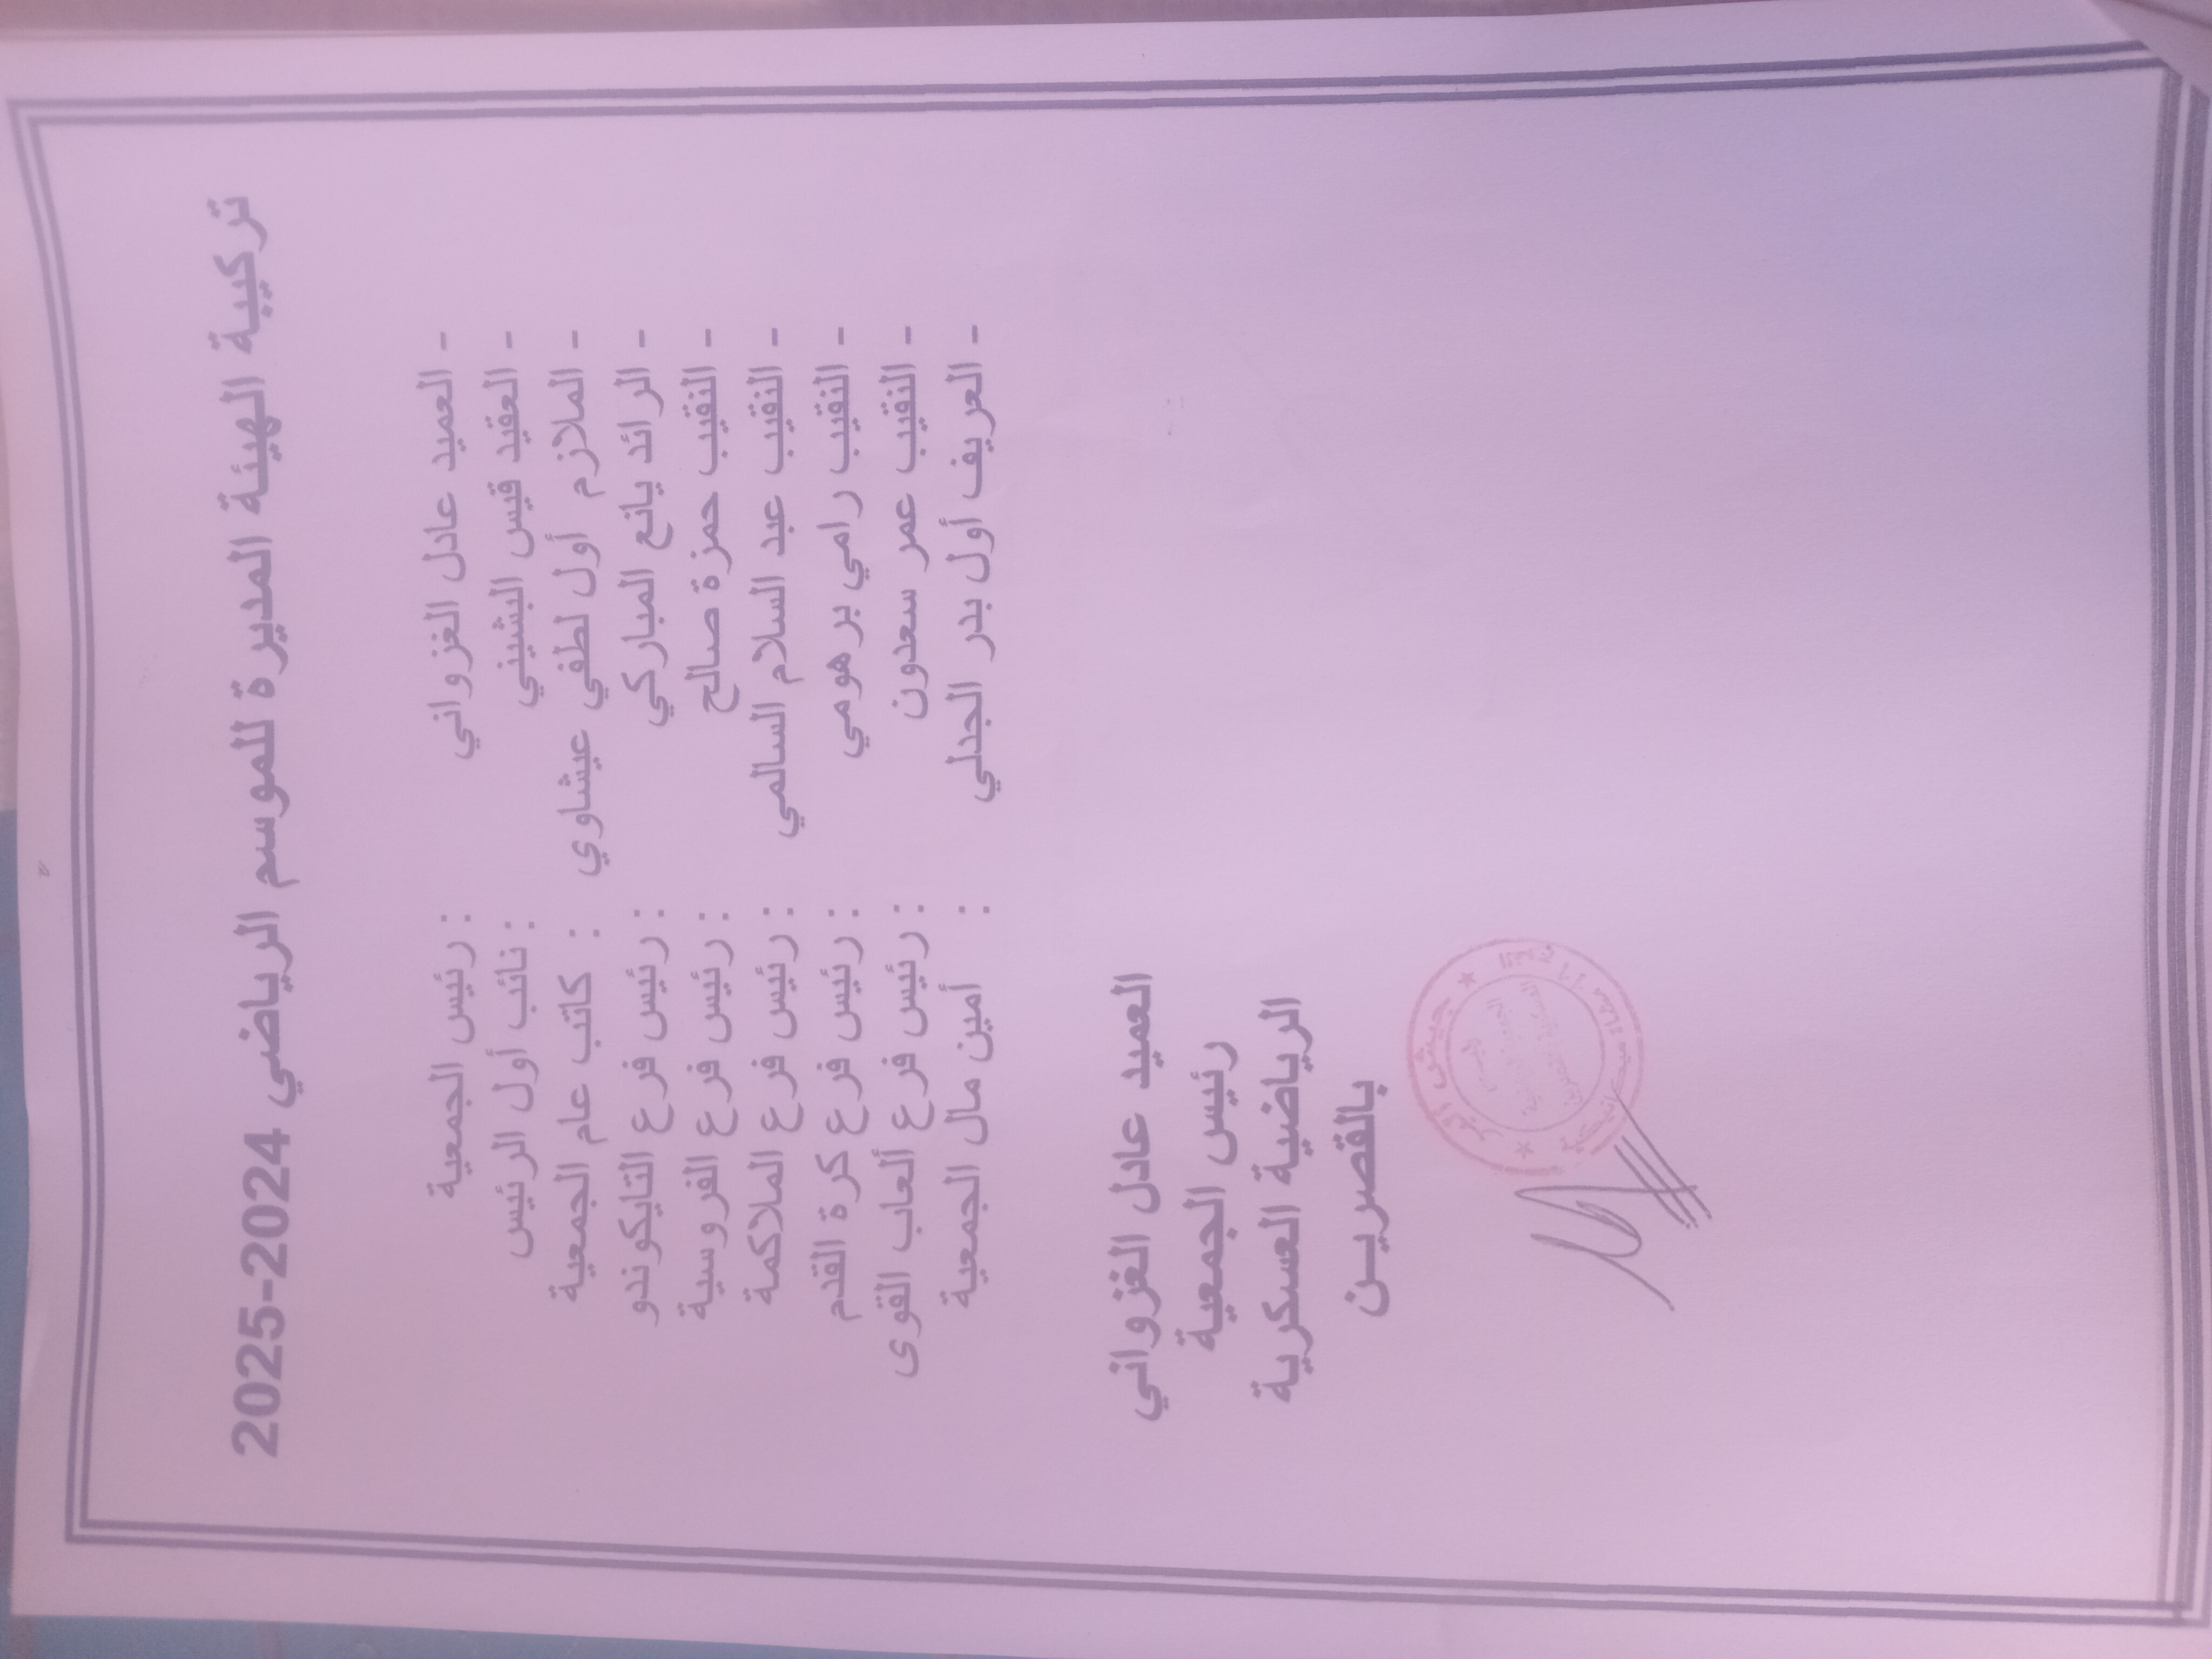 تركيبة الهيئة المديرة للموسم الرياضي 2024-2025
- العميد عادل الغزواني : رئيس الجمعية
- العقيد قيس البشيني : نائب أول الرئيس
- الملازم أول لطفي عيشاوي : كاتب عام الجمعية
- الرائد يانع المباركي : رئيس فرع التايكوندو
- النقيب حمزة صالح : رئيس فرع الفروسية
- النقيب عبد السلام السالمي : رئيس فرع الملاكمة
- النقيب رامي برهومي : رئيس فرع كرة القدم
- النقيب عمر سعدون : رئيس فرع ألعاب القوى
- العريف أول بدر الجدلي : أمين مال الجمعية
العميد عادل الغزواني
رئيس الجمعية
الرياضية العسكرية
بالقصريـن
جيش البر